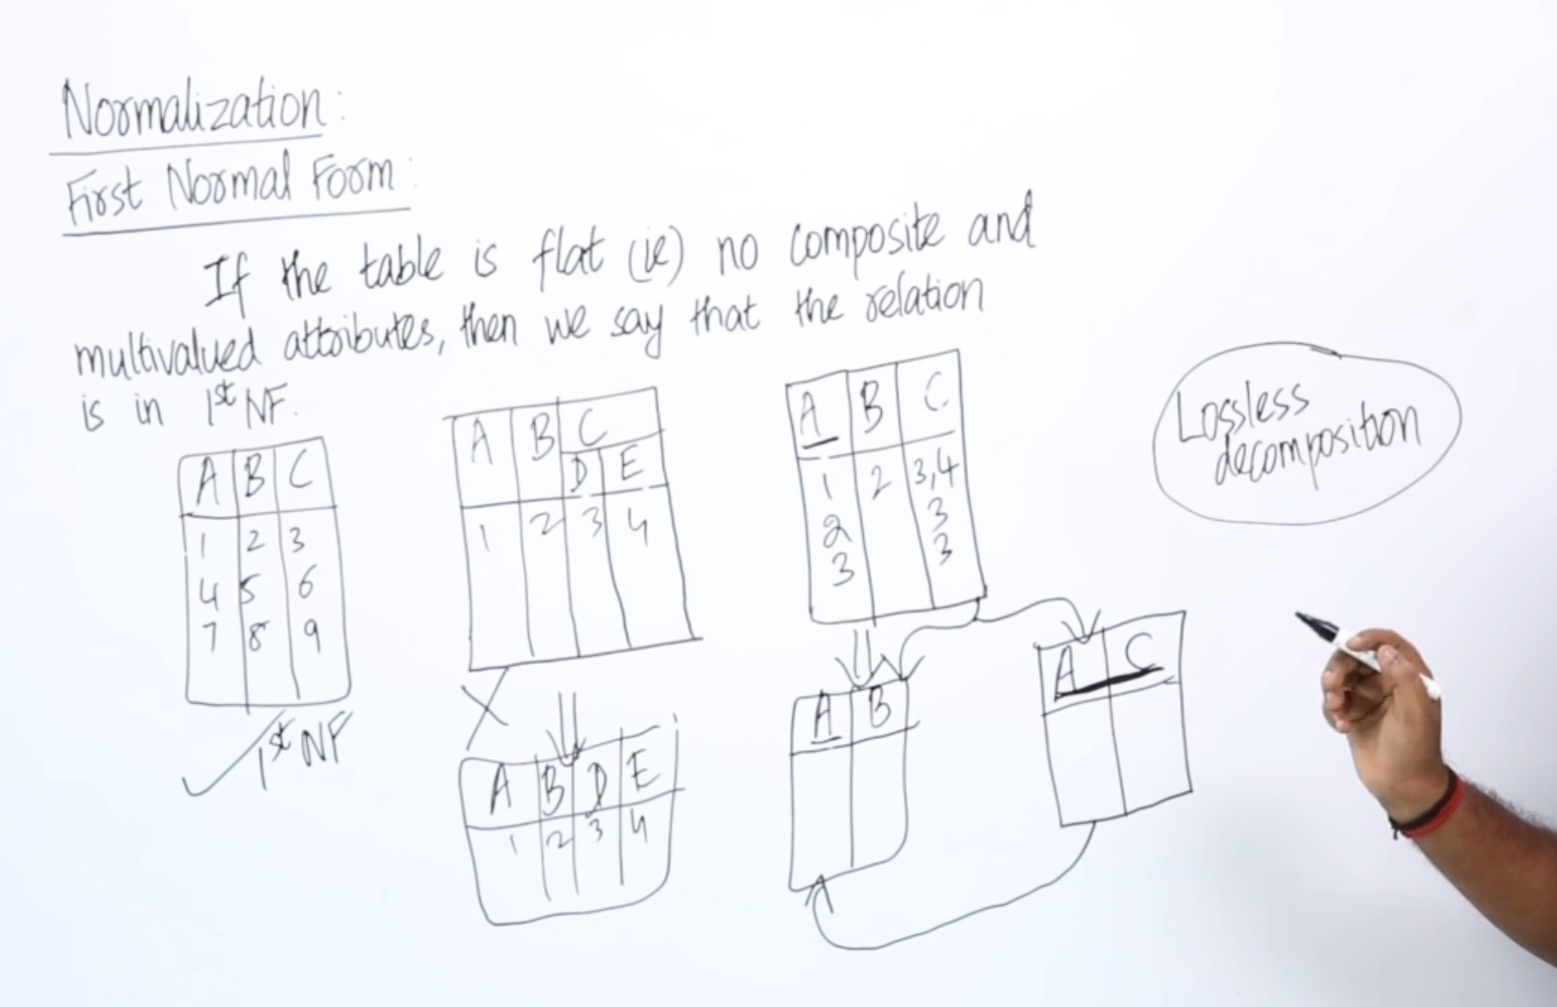 Normalization:
First Normal Form:
If the table is flat (ie) no composite and
multivalued attributes, then we say that the relation
is in 1st NF.
A B C
1 2 3
4 5 6
7 8 9
1st NF
A B C
D E
1 2 3 4
A B D E
1 2 3 4
A B C
1 2 3,4
2 3
3 3
A B
A C
Lossless
decomposition